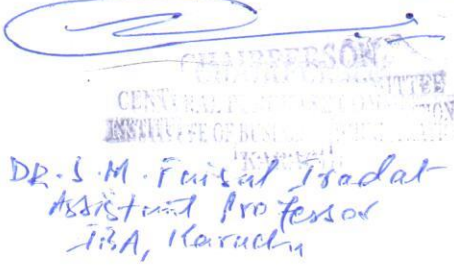 CHAIRPERSON
COMMITTEE
CENTRAL
INSTITUTE OF BUSINESS
KARACHI
DR. S. M. Faisal Iradat
Assistant Professor
IBA, Karachi